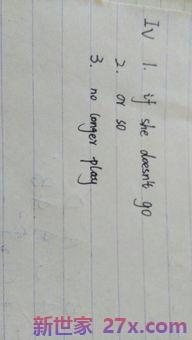 IV 1. if she doesn't go
2. or so
3. no longer play
新世家 27x.com